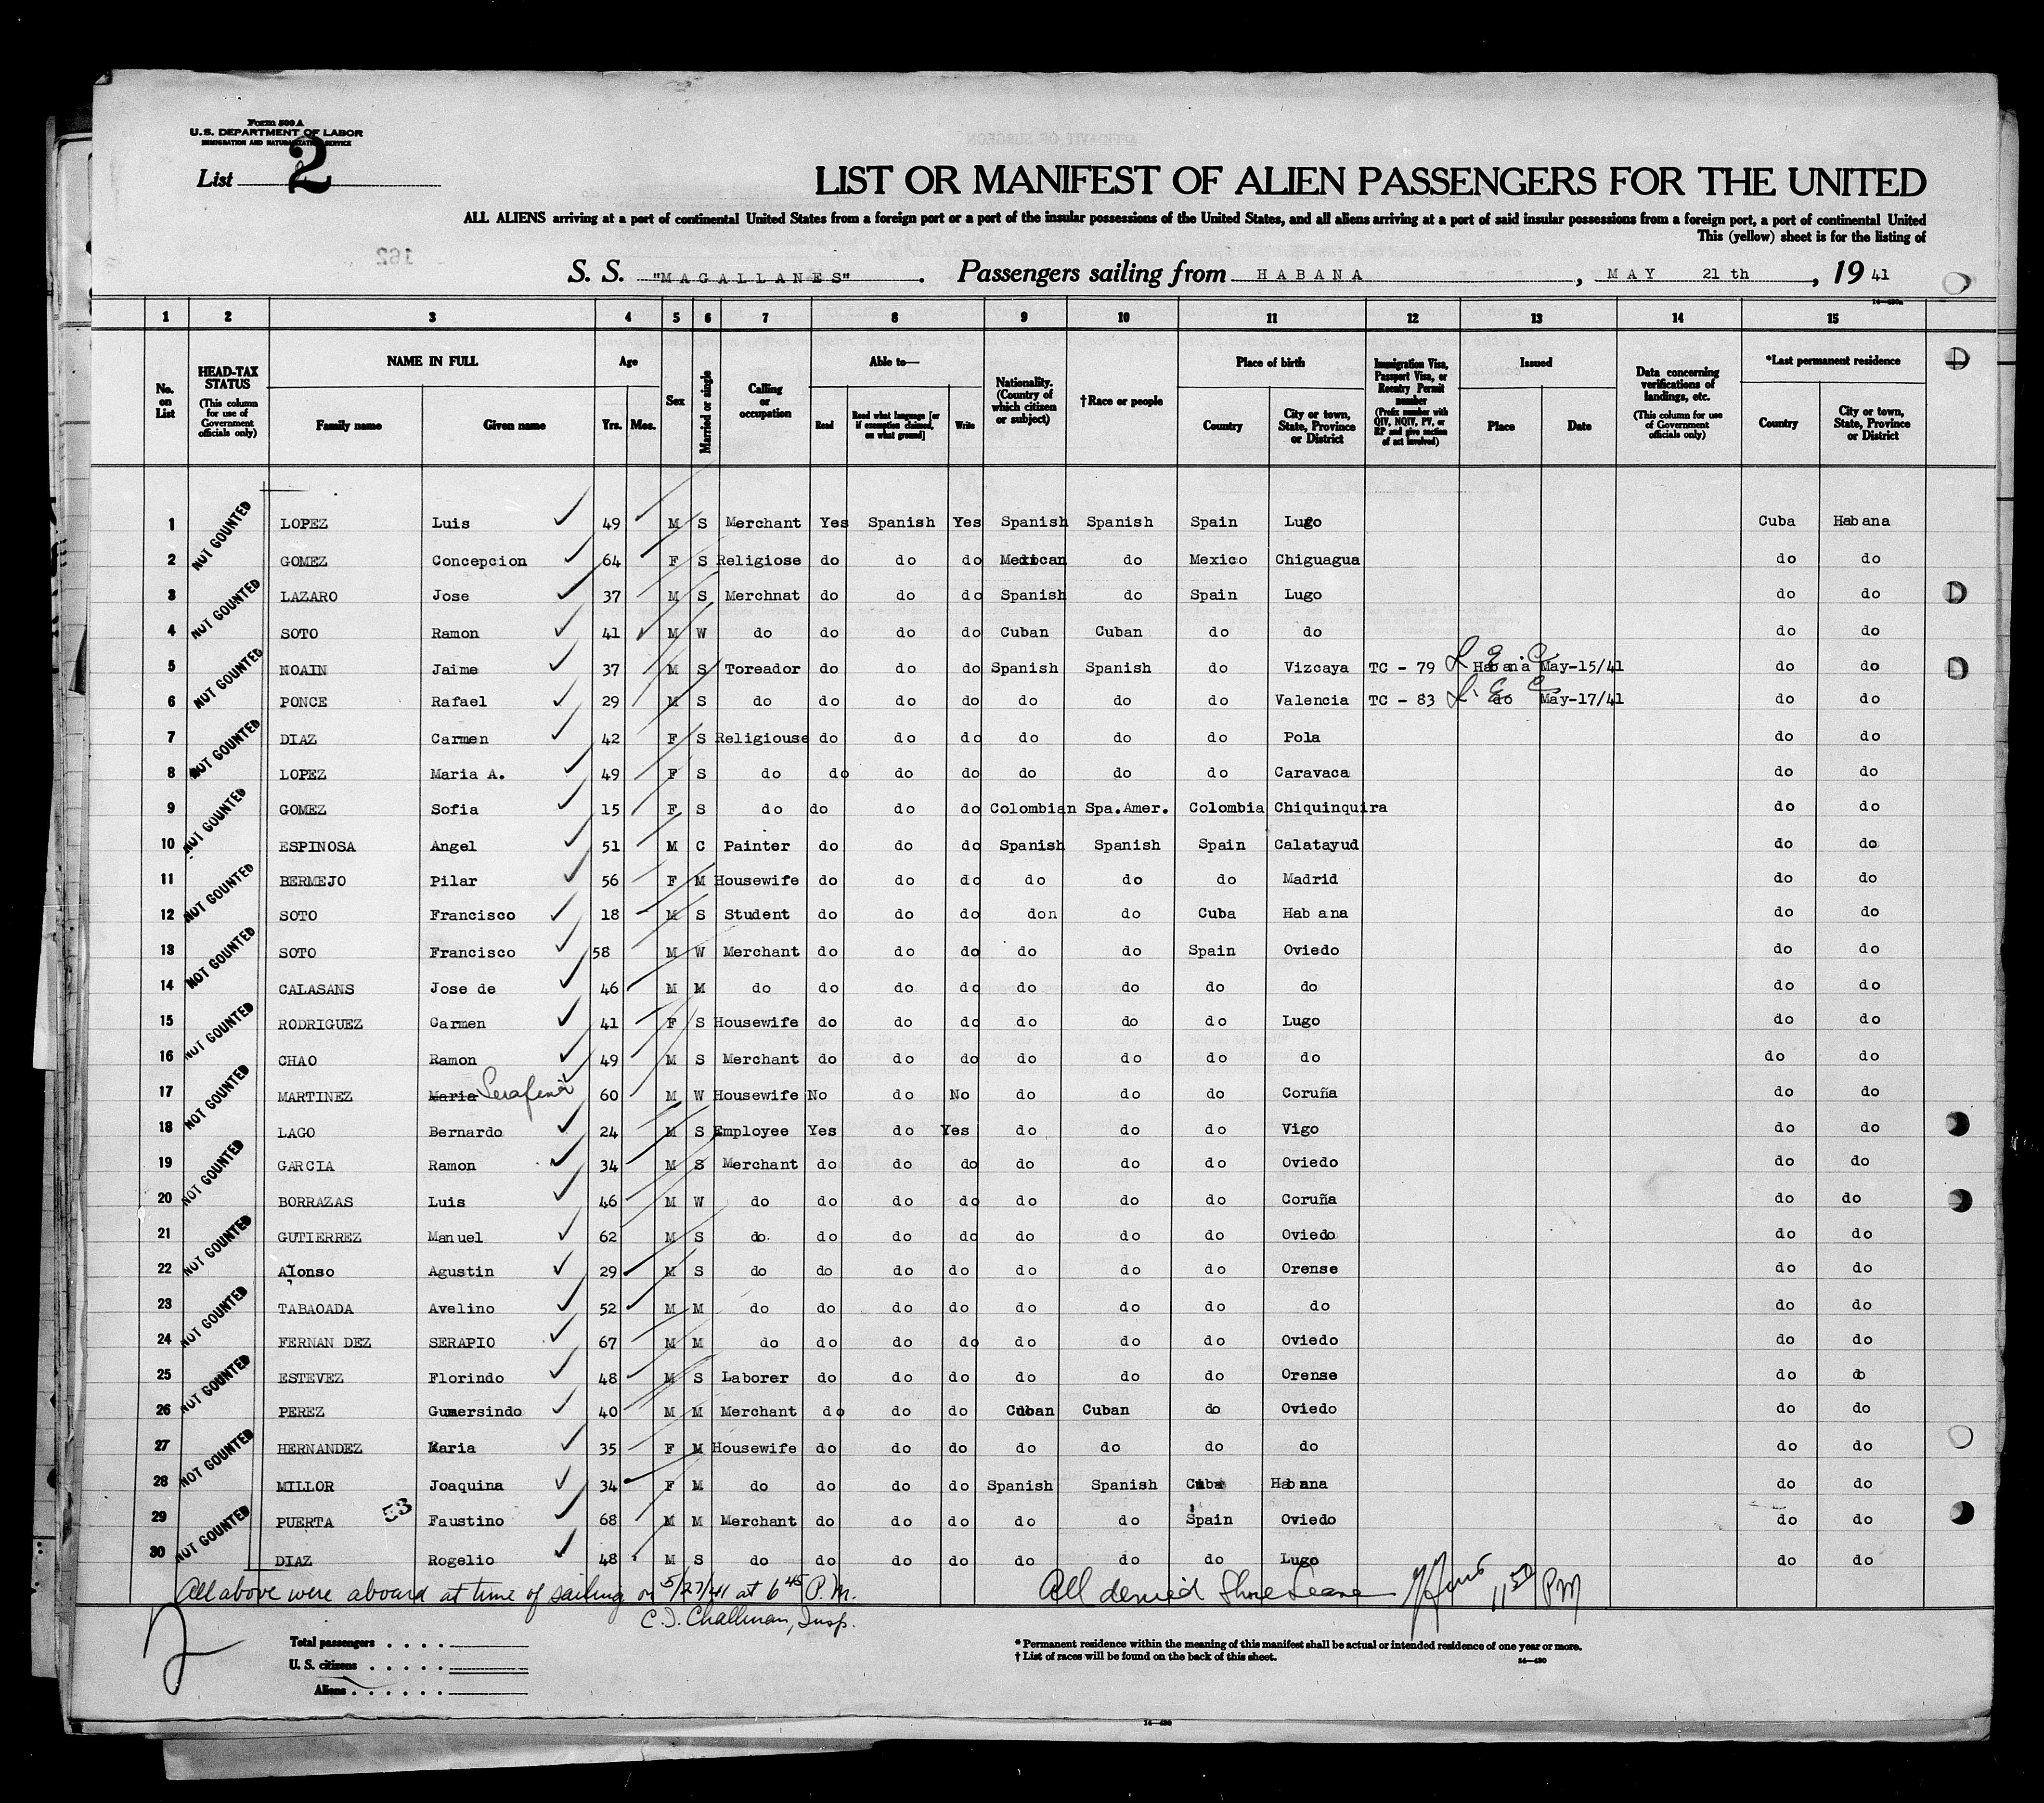 Form 500 A
U.S. DEPARTMENT OF LABOR
IMMIGRATION AND NATURALIZATION SERVICE
List 2
LIST OR MANIFEST OF ALIEN PASSENGERS FOR THE UNITED
ALL ALIENS arriving at a port of continental United States from a foreign port or a port of the insular possessions of the United States, and all aliens arriving at a port of said insular possessions from a foreign port, a port of continental United
This (yellow) sheet is for the listing of
162
S. S. "MAGALLANES". Passengers sailing from HABANA, MAY 21 th, 19 41
1 2 3 4 5 6 7 8 9 10 11 12 13 14 15
No. on List
HEAD-TAX STATUS (This column for use of Government officials only)
NAME IN FULL Family name Given name
Age Yrs. Mos.
Sex
Married or single
Calling or occupation
Able to— Read Read what language [or if exemption claimed, on what ground] Write
Nationality. (Country of which citizen or subject)
†Race or people
Place of birth Country City or town, State, Province or District
Immigration Visa, Passport Visa, or Reentry Permit number (Prefix number with QIV, NQIV, PV, or RP and give section of act involved)
Issued Place Date
Data concerning verifications of landings, etc. (This column for use of Government officials only)
*Last permanent residence Country City or town, State, Province or District
1 NOT COUNTED LOPEZ Luis 49 M S Merchant Yes Spanish Yes Spanish Spanish Spain Lugo Cuba Habana
2 GOMEZ Concepcion 64 F S Religiose do do do Mexican do Mexico Chiguagua do do
3 NOT COUNTED LAZARO Jose 37 M S Merchnat do do do Spanish do Spain Lugo do do
4 SOTO Ramon 41 M W do do do do Cuban Cuban do do do do
5 NOT COUNTED NOAIN Jaime 37 M S Toreador do do do Spanish Spanish do Vizcaya TC - 79 Habana May-15/41 do do
6 PONCE Rafael 29 M S do do do do do do do Valencia TC - 83 do May-17/41 do do
7 NOT COUNTED DIAZ Carmen 42 F S Religiouse do do do do do do Pola do do
8 LOPEZ Maria A. 49 F S do do do do do do do Caravaca do do
9 NOT COUNTED GOMEZ Sofia 15 F S do do do do Colombian Spa.Amer. Colombia Chiquinquira do do
10 ESPINOSA Angel 51 M C Painter do do do Spanish Spanish Spain Calatayud do do
11 NOT COUNTED BERMEJO Pilar 56 F M Housewife do do do do do do Madrid do do
12 SOTO Francisco 18 M S Student do do do don do Cuba Hab ana do do
13 NOT COUNTED SOTO Francisco 58 M W Merchant do do do do do Spain Oviedo do do
14 CALASANS Jose de 46 M M do do do do do do do do do do
15 NOT COUNTED RODRIGUEZ Carmen 41 F S Housewife do do do do do do Lugo do do
16 CHAO Ramon 49 M S Merchant do do do do do do do do do
17 NOT COUNTED MARTINEZ Maria Serafina 60 M W Housewife No do No do do do Coruña do do
18 LAGO Bernardo 24 M S Employee Yes do Yes do do do Vigo do do
19 NOT COUNTED GARCIA Ramon 34 M S Merchant do do do do do do Oviedo do do
20 BORRAZAS Luis 46 M W do do do do do do do Coruña do do
21 NOT COUNTED GUTIERREZ Manuel 62 M S do do do do do do do Oviedo do do
22 Alonso Agustin 29 M S do do do do do do do Orense do do
23 NOT COUNTED TABAOADA Avelino 52 M M do do do do do do do do do do
24 FERNAN DEZ SERAPIO 67 M M do do do do do do do Oviedo do do
25 NOT COUNTED ESTEVEZ Florindo 48 M S Laborer do do do do do do Orense do do
26 PEREZ Gumersindo 40 M M Merchant do do do Cuban Cuban do Oviedo do do
27 NOT COUNTED HERNANDEZ Maria 35 F M Housewife do do do do do do do do do
28 MILLOR Joaquina 34 F M do do do do Spanish Spanish Cuba Habana do do
29 NOT COUNTED PUERTA 53 Faustino 68 M M Merchant do do do do do Spain Oviedo do do
30 DIAZ Rogelio 48 M S do do do do do do do Lugo do do
All above were aboard at time of sailing on 5/27/41 at 6 45 P.M. All denied Shore Leave 11 50 PM
C. J. Challman, Insp.
2
Total passengers
U. S. citizens
Aliens
* Permanent residence within the meaning of this manifest shall be actual or intended residence of one year or more.
† List of races will be found on the back of this sheet.
14—430